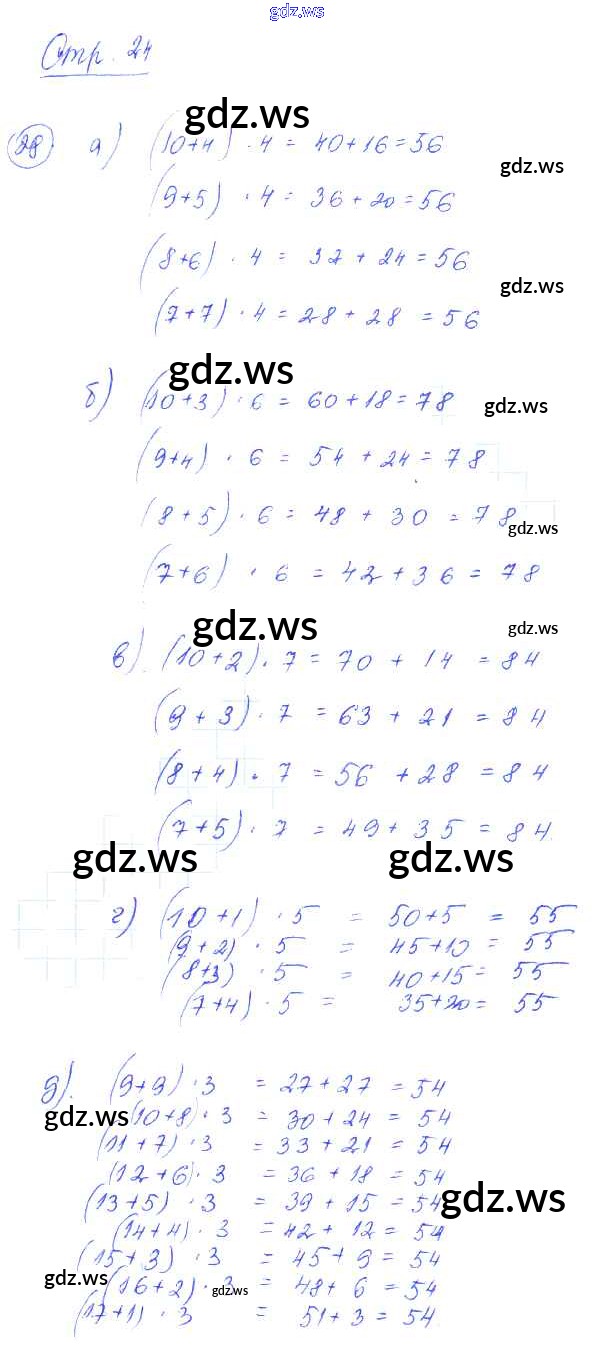 gdz.ws
Стр. 24
gdz.ws
28 а) (10+4) · 4 = 40+16=56
gdz.ws
(9+5) · 4 = 36+20=56
(8+6) · 4 = 32+24=56
gdz.ws
(7+7) · 4 = 28+28 = 56
gdz.ws
б) (10+3) · 6 = 60+18=78
gdz.ws
(9+4) · 6 = 54+24=78
(8+5) · 6 = 48+30 = 78
gdz.ws
(7+6) · 6 = 42+36 = 78
gdz.ws
gdz.ws
в). (10+2) · 7 = 70 + 14 = 84
(9+3) · 7 = 63 + 21 = 84
(8+4) · 7 = 56 + 28 = 84
(7+5) · 7 = 49+35 = 84.
gdz.ws gdz.ws
г) (10+1) · 5 = 50+5 = 55
(9+2) · 5 = 45+10 = 55
(8+3) · 5 = 40+15 = 55
(7+4) · 5 = 35+20 = 55
д). (9+9) · 3 = 27+27 = 54
gdz.ws (10+8) · 3 = 30+24 = 54
(11+7) · 3 = 33+21 = 54
(12+6) · 3 = 36+18 = 54
(13+5) · 3 = 39+15 = 54
gdz.ws
(14+4) · 3 = 42+12 = 54
(15+3) · 3 = 45+9 = 54
gdz.ws (16+2) · 3 = 48+6 = 54
gdz.ws
(17+1) · 3 = 51+3 = 54.